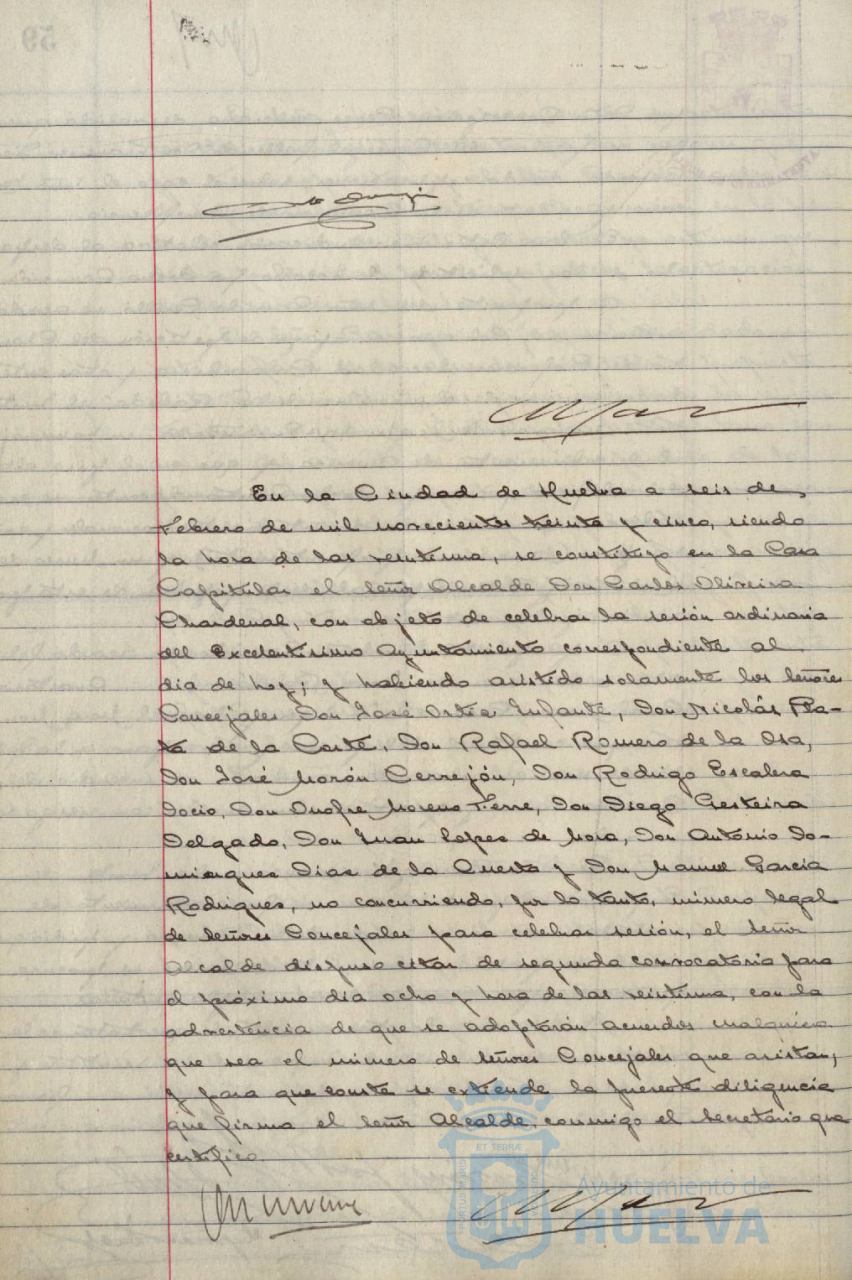 En la Ciudad de Huelva a seis de
Febrero de mil novecientos treinta y cinco, siendo
la hora de las veintiuna, se constituyó en la Casa
Capitular el señor Alcalde Don Carlos Oliveira
Chardenal, con objeto de celebrar la sesión ordinaria
del Excelentísimo Ayuntamiento correspondiente al
día de hoy; y habiendo asistido solamente los señores
Concejales Don José Ortea Infante, Don Nicolás Pla-
ta de la Corte, Don Rafael Romero de la Osa,
Don José Morón Cerrejón, Don Rodrigo Escalera
Socio, Don Onofre Moreno Ferre, Don Diego Gesteira
Delgado, Don Juan Lopes de Mora, Don António Do-
mingues Dias de la Cuesta y Don Manuel García
Rodrigues, no concurriendo, por lo tanto, número legal
de señores Concejales para celebrar sesión, el señor
Alcalde dispuso citar de segunda convocatoria para
el próximo día ocho y hora de las veintiuna, con la
advertencia de que se adoptarán acuerdos cualquiera
que sea el número de señores Concejales que asistan;
y para que conste se extiende la presente diligencia
que firma el señor Alcalde, conmigo el Secretario que
certifico.
ET TERRÆ
Ayuntamiento de
HUELVA